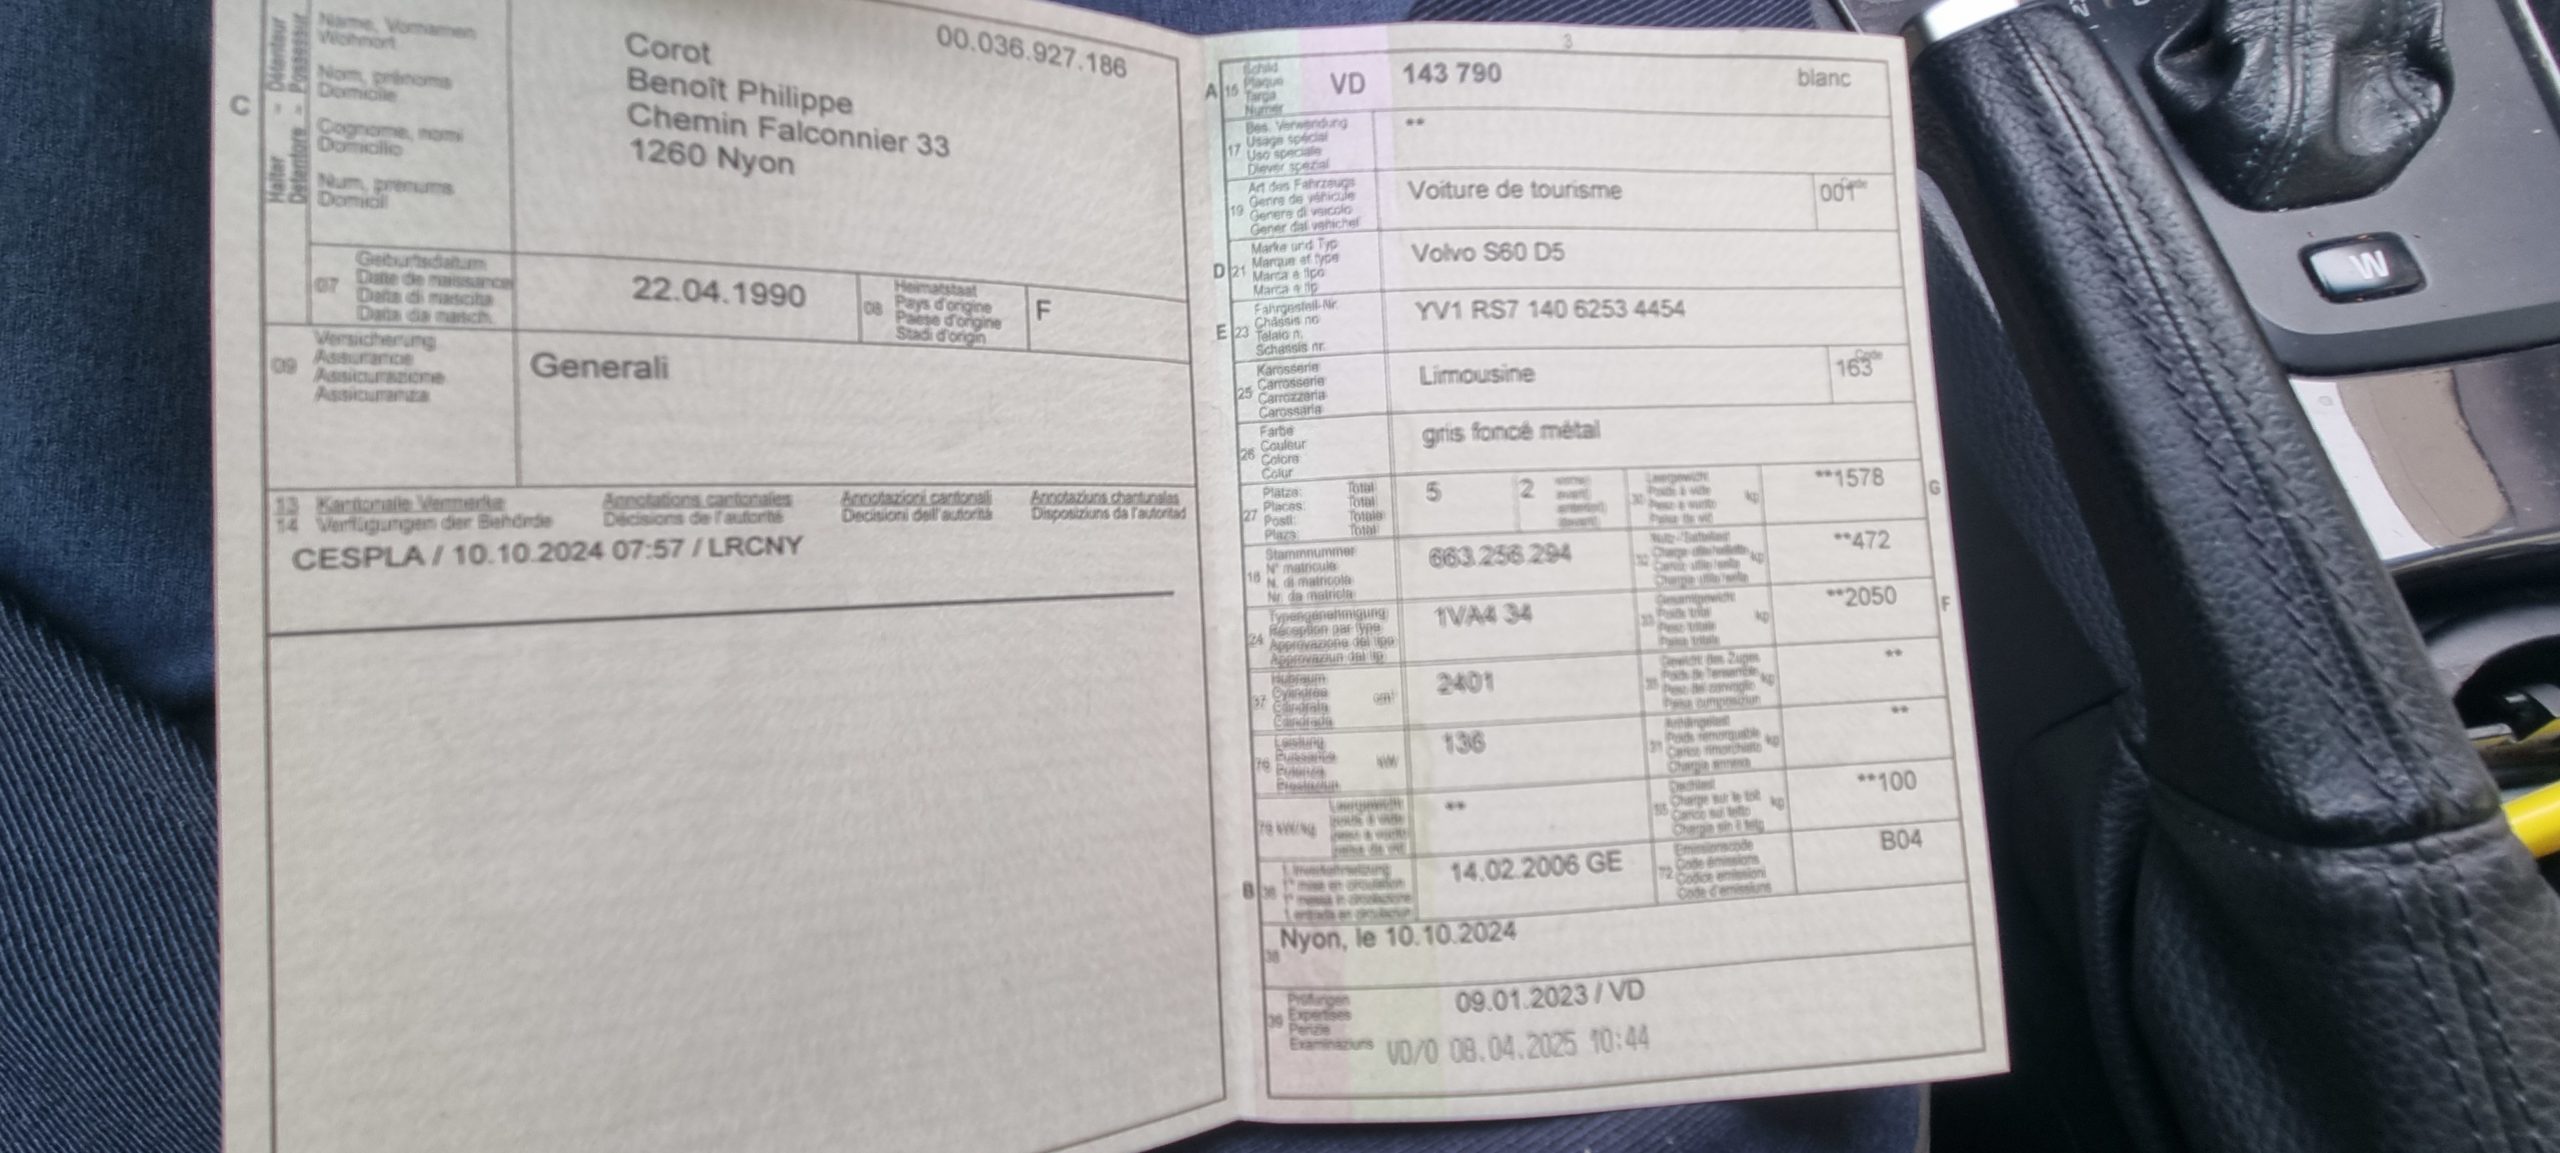 Halter – Détenteur
Detentore – Possessur
C
Name, Vornamen
Wohnort
Nom, prénoms
Domicile
Cognome, nomi
Domicilio
Num, prenums
Domicil
00.036.927.186
Corot
Benoît Philippe
Chemin Falconnier 33
1260 Nyon
07
Geburtsdatum
Date de naissance
Data di nascita
Data da nasch.
22.04.1990
08
Heimatstaat
Pays d'origine
Paese d'origine
Stadi d'origin
F
09
Versicherung
Assurance
Assicurazione
Assicuranza
Generali
13 Kantonale Vermerke Annotations cantonales Annotazioni cantonali Annotaziuns chantunalas
14 Verfügungen der Behörde Décisions de l'autorité Decisioni dell'autorità Disposiziuns da l'autoritad
CESPLA / 10.10.2024 07:57 / LRCNY
3
A 15
Schild
Plaque
Targa
Numer
VD 143 790 blanc
17
Bes. Verwendung
Usage spécial
Uso speciale
Diever spezial
**
19
Art des Fahrzeugs
Genre de véhicule
Genere di veicolo
Gener dal vehichel
Voiture de tourisme
Code
001
D 21
Marke und Typ
Marque et type
Marca e tipo
Marca e tip
Volvo S60 D5
E 23
Fahrgestell-Nr.
Châssis no
Telaio n.
Schassis nr.
YV1 RS7 140 6253 4454
25
Karosserie
Carrosserie
Carrozzeria
Carossaria
Limousine
Code
163
26
Farbe
Couleur
Colore
Colur
gris foncé métal
27
Plätze: Total
Places: Total
Posti: Totale
Plazs: Total
5 2
30
Leergewicht
Poids à vide
kg
**1578
G
18
Stammnummer
N° matricule
N. di matricola
Nr. da matricla
663.256.294
32
kg
**472
24
Typengenehmigung
Réception par type
Approvazione del tipo
Approvaziun dal tip
1VA4 34
33
Gesamtgewicht
Poids total
kg
**2050
F
37
Hubraum
Cylindrée
Cilindrata
cm³
2401
35
Gewicht des Zuges
Poids de l'ensemble
kg
**
76
Leistung
Puissance
kW
136
31
Anhängelast
Poids remorquable
kg
**
78 kW/kg
Leergewicht
**
55
Dachlast
Charge sur le toit
kg
**100
B 36
1. Inverkehrsetzung
1re mise en circulation
14.02.2006 GE
72
Emissionscode
Code émissions
Codice emissioni
Code d'emissiuns
B04
38
Nyon, le 10.10.2024
39
Prüfungen
Expertises
Perizie
Examinaziuns
09.01.2023 / VD
VD/0 08.04.2025 10:44
W